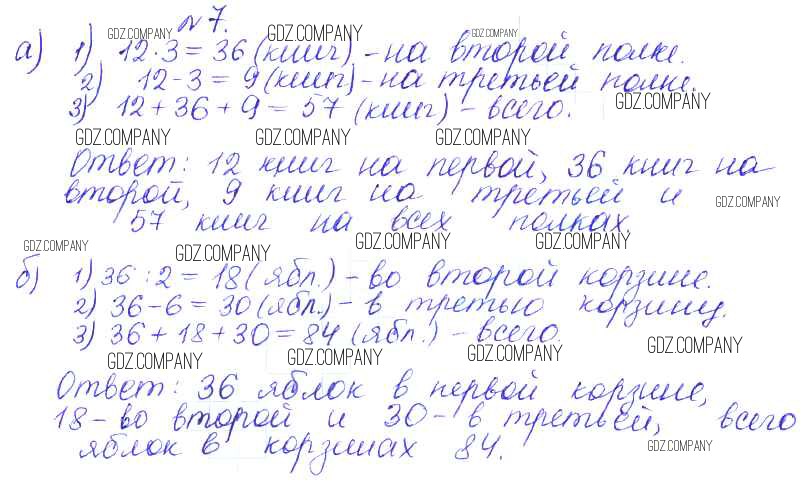 № 7.
GDZ.COMPANY GDZ.COMPANY
а) 1) 12·3=36 (книг) - на второй полке.
2) 12-3=9 (книг) - на третьей полке.
GDZ.COMPANY
3) 12+36+9=57 (книг) - всего.
GDZ.COMPANY GDZ.COMPANY GDZ.COMPANY
Ответ: 12 книг на первой, 36 книг на
второй, 9 книг на третьей и
GDZ.COMPANY
57 книг на всех полках.
GDZ.COMPANY GDZ.COMPANY GDZ.COMPANY GDZ.COMPANY
б) 1) 36:2=18 (ябл.) - во второй корзине.
2) 36-6=30 (ябл.) - в третью корзину.
3) 36+18+30=84 (ябл.) - всего.
GDZ.COMPANY GDZ.COMPANY GDZ.COMPANY GDZ.COMPANY
Ответ: 36 яблок в первой корзине,
18 - во второй и 30 - в третьей, всего
яблок в корзинах 84.
GDZ.COMPANY